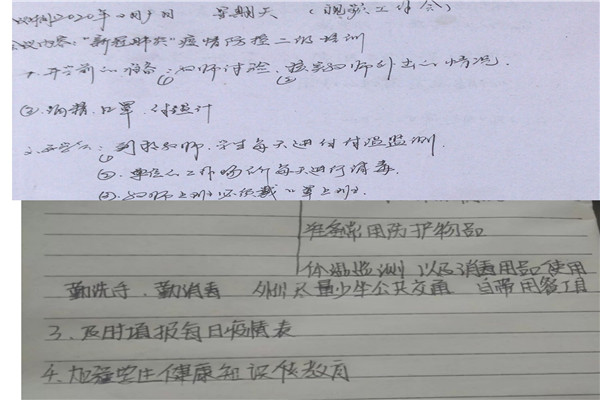 时间2020年2月9日 星期天 (视频工作会)
会议内容:"新冠肺炎"疫情防控二级培训
1.开学前的准备:①教师讨论.②核实教师外出的情况.
②酒精.口罩.体温计
2.开学后:①到校教师、学生每天进行体温监测.
②.单位、工作场所每天进行消毒.
③.教师上班必须戴口罩上班.
准备常用防护物品
体温监测 以及消毒用品使用
勤洗手.勤消毒 外出尽量少坐公共交通 自带用餐工具
3.及时填报每日疫情表
4.加强学生健康知识传教育